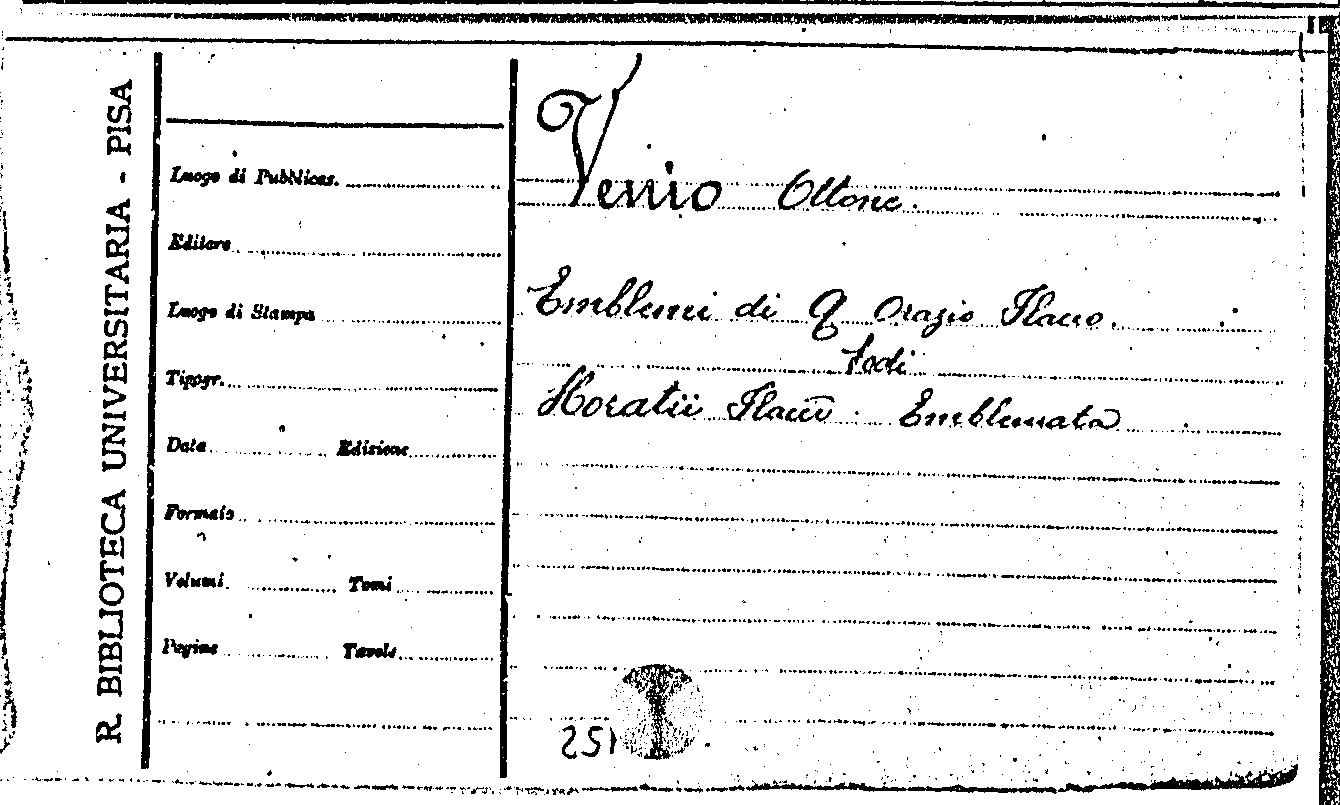 R. BIBLIOTECA UNIVERSITARIA - PISA
Luogo di Pubblicas.
Editore
Luogo di Stampa
Tipogr.
Data Edizione
Formato
Volumi Tomi
Pagine Tavole
Venio Ottone.
Emblemi di Q Orazio Flacco.
Vedi
Horatii Flacci Emblemata
251